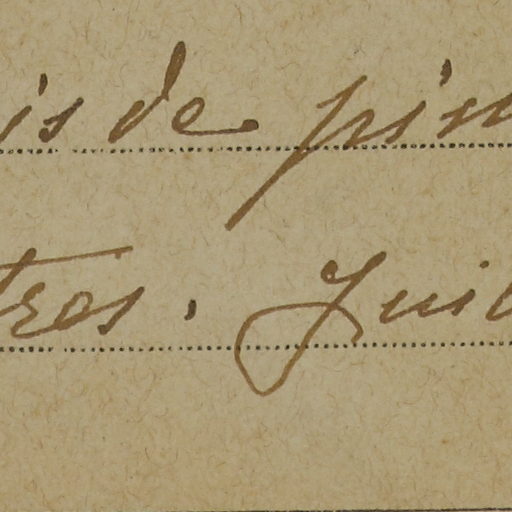 is de pin
tres. Juil